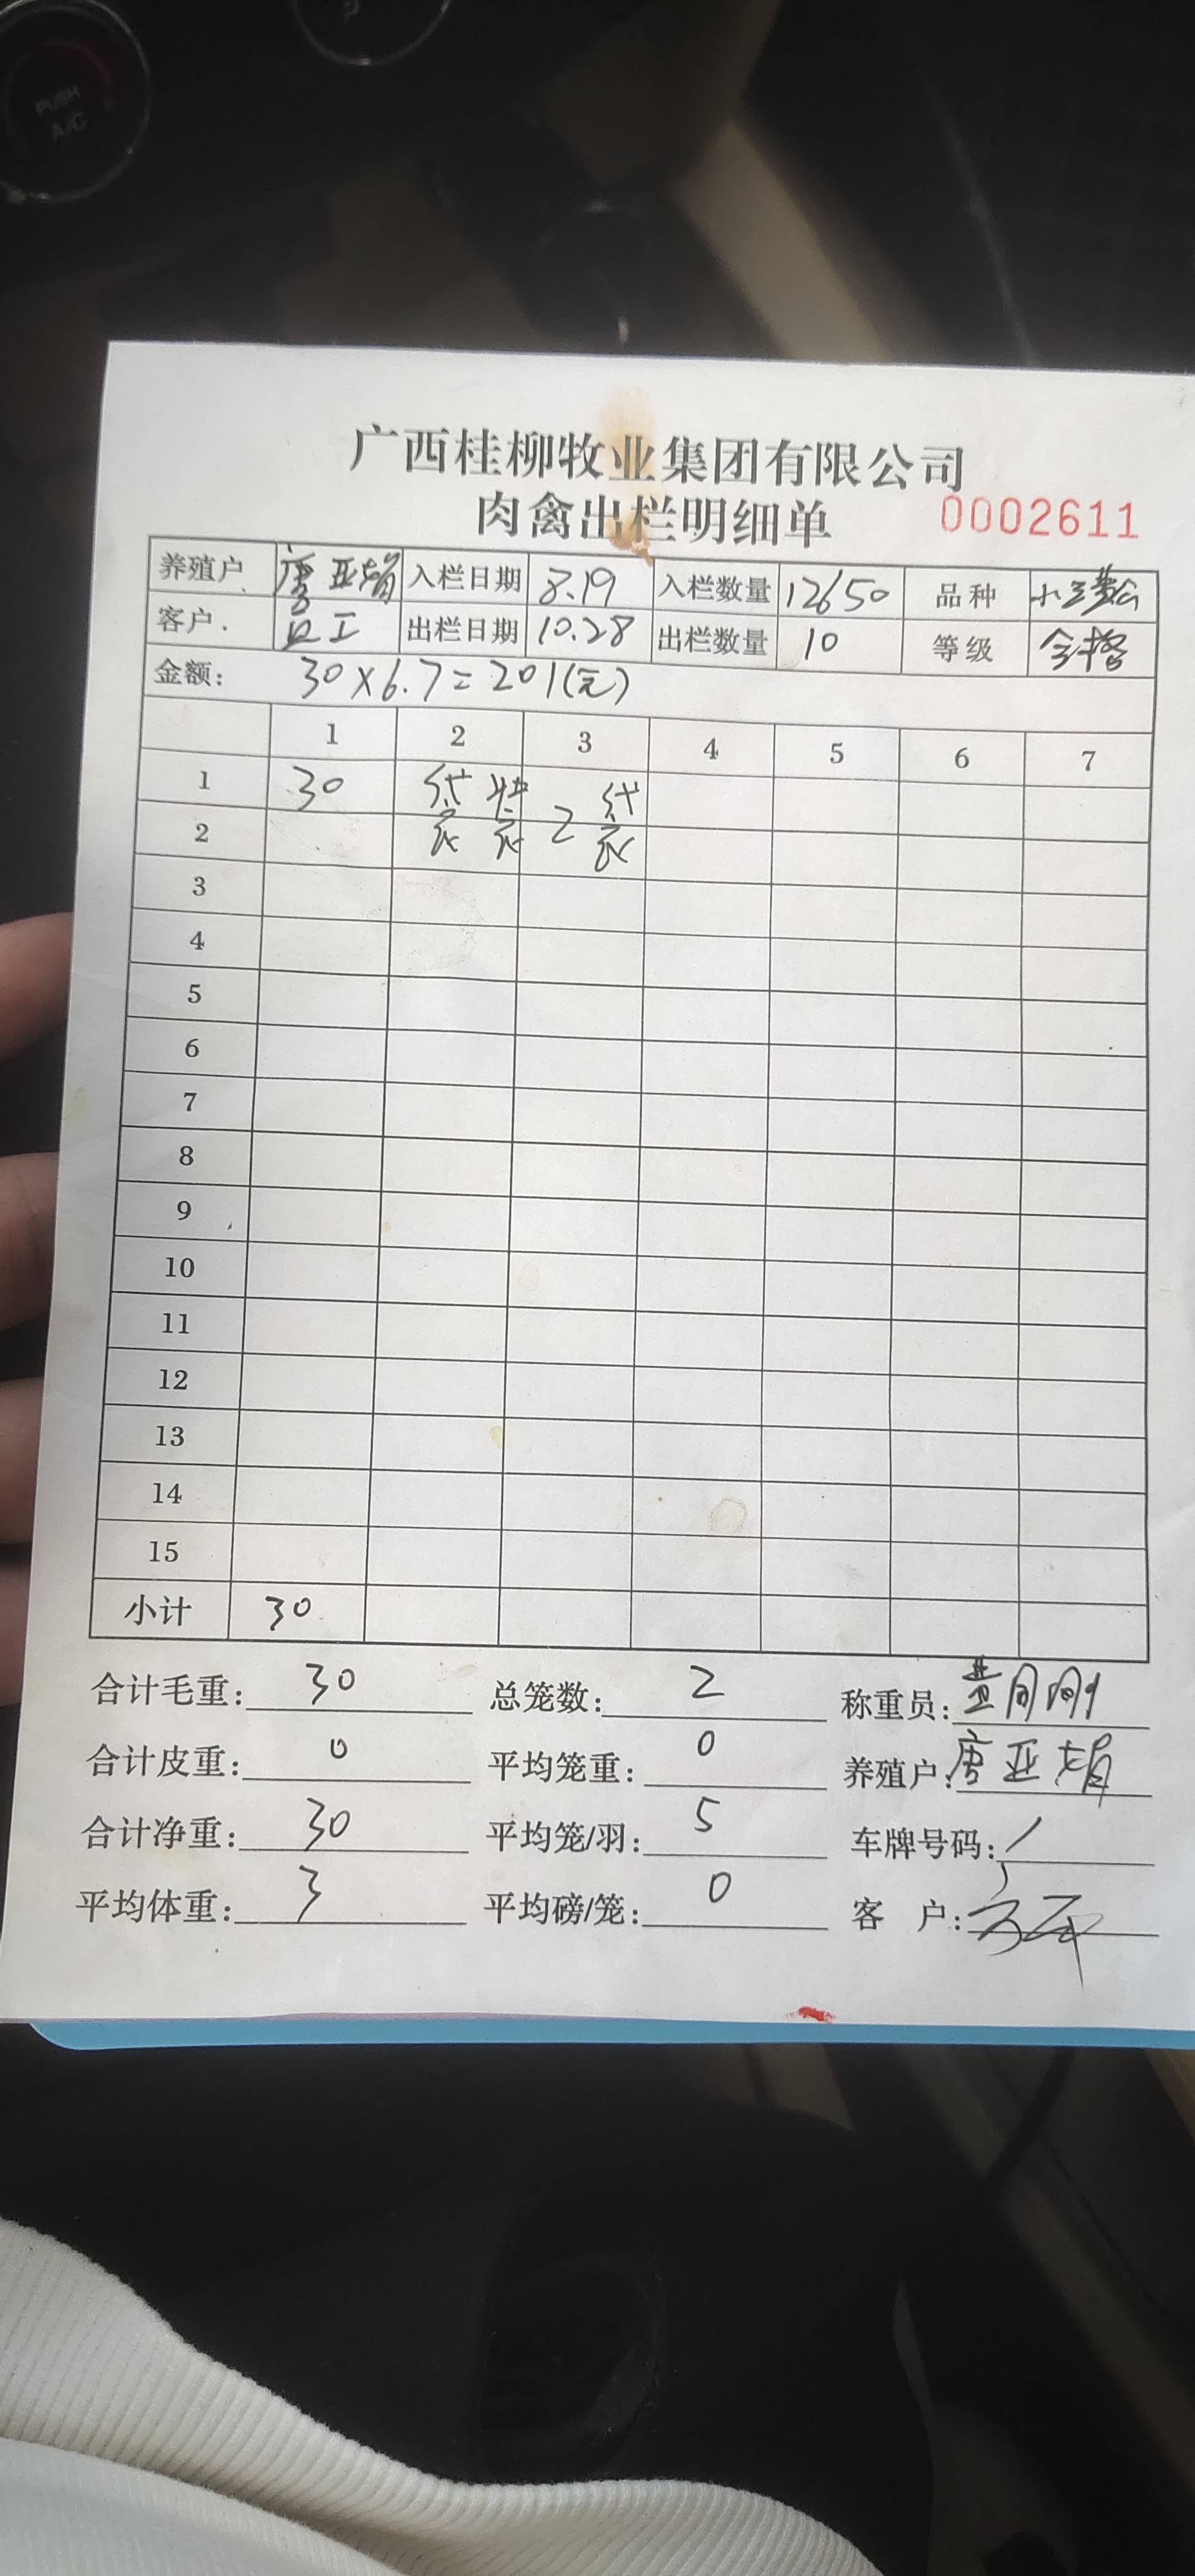 PUSH
A/C
广西桂柳牧业集团有限公司
肉禽出栏明细单 0002611
养殖户 唐亚娟 入栏日期 8.19 入栏数量 12650 品种
客户. 员工 出栏日期 10.28 出栏数量 10 等级 合格
金额: 30×6.7=201(元)
1 2 3 4 5 6 7
1 30 袋装 2袋
2
3
4
5
6
7
8
9
10
11
12
13
14
15
小计 30
合计毛重: 30 总笼数: 2 称重员:
合计皮重: 0 平均笼重: 0 养殖户: 唐亚娟
合计净重: 30 平均笼/羽: 5 车牌号码: /
平均体重: 3 平均磅/笼: 0 客 户: